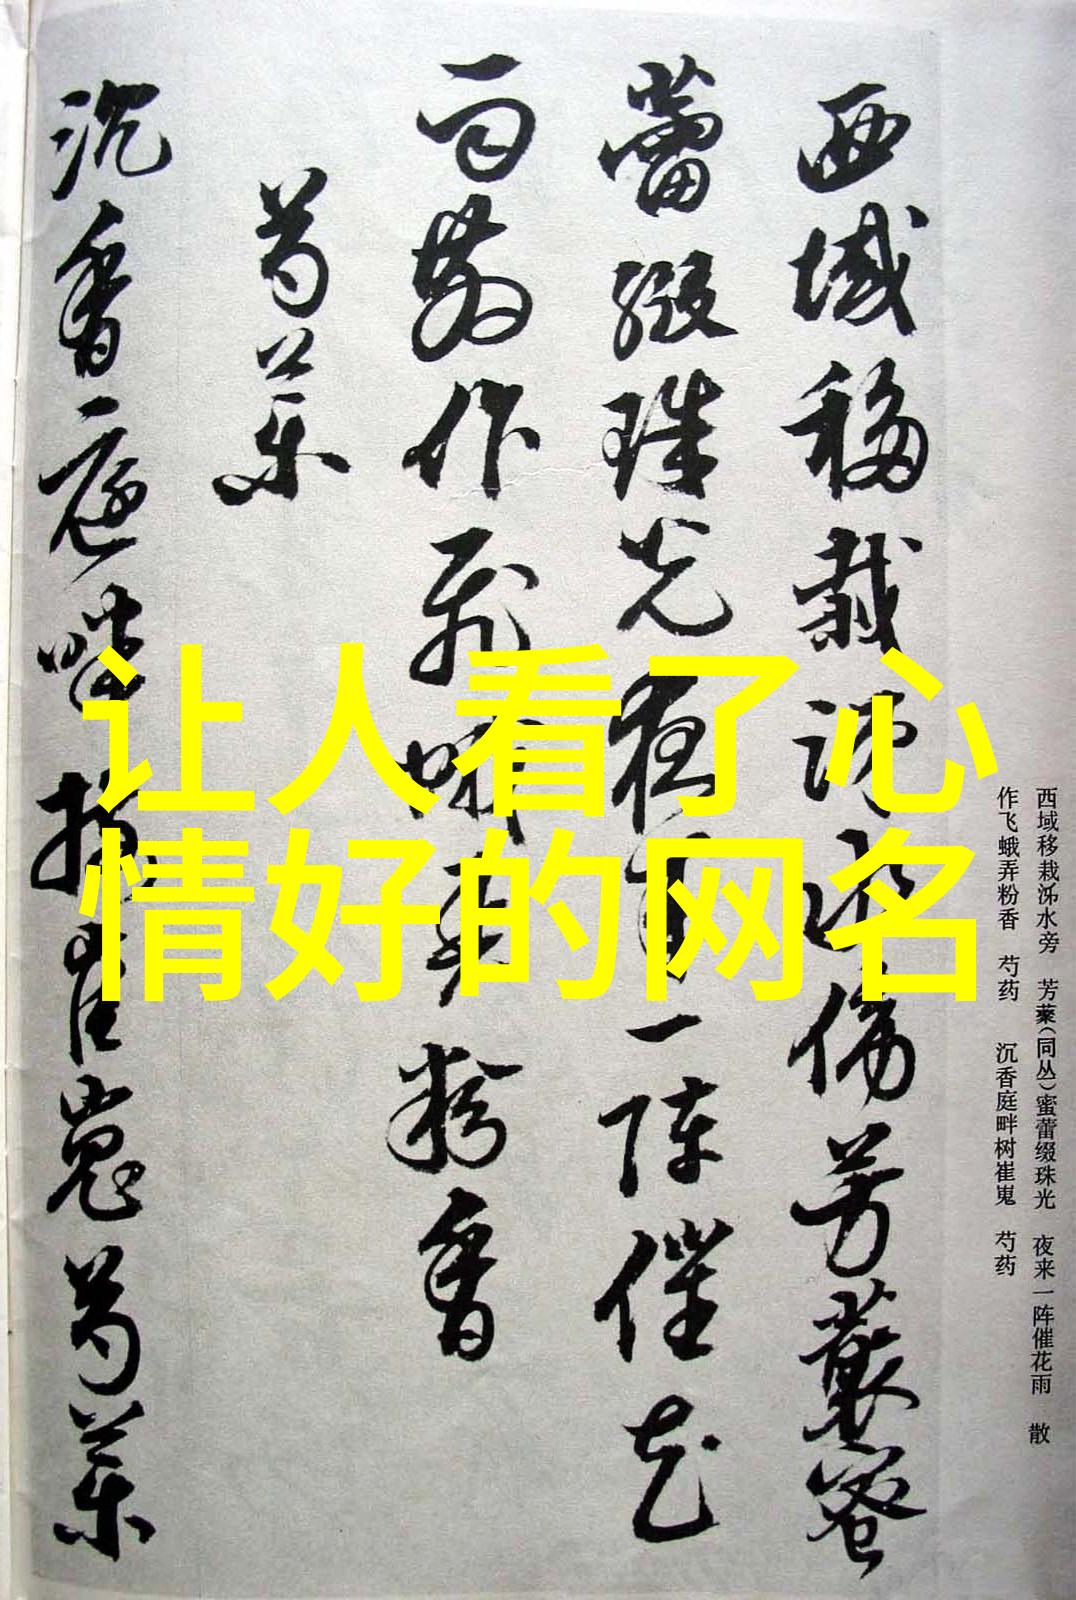 西域移栽水傍芳藂蜜
蕾綴珠光夜来一陣催花
雨散作飛蛾弄粉香
芍藥
沉香庭畔樹崔嵬芍藥
让人看了心
情好的网名
西域移栽水旁 芳藂(同丛)蜜蕾缀珠光 夜来一阵催花雨 散
作飞蛾弄粉香 芍药 沉香庭畔树崔嵬 芍药